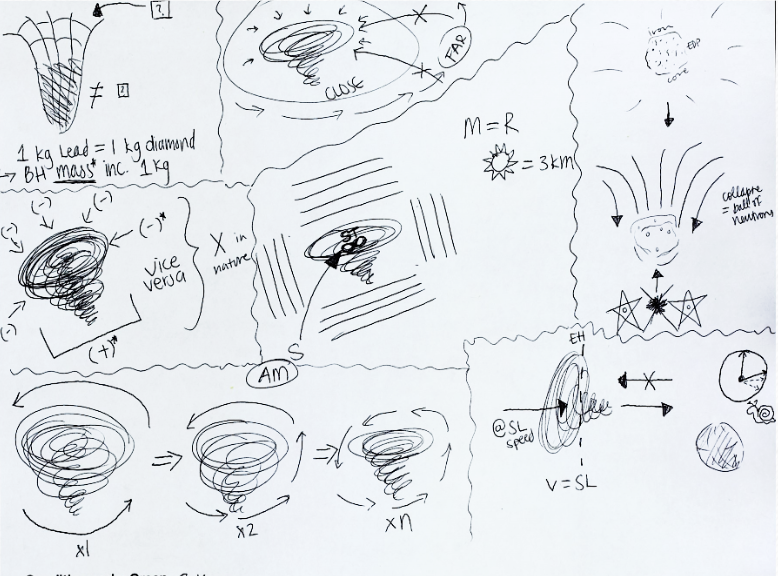 ?
≠ ?
1 kg Lead = 1 kg diamond
→ BH mass* inc. 1 kg
CLOSE
FAR
M = R
= 3km
iron
EDP
core
collapse
= ball of
neutrons
(-)
(-)
(-)
(-)*
(-)
(-)
vice
versa
X in
nature
(+)*
ST
∞
S
AM
x1
x2
xn
EH
@SL
speed
V = SL